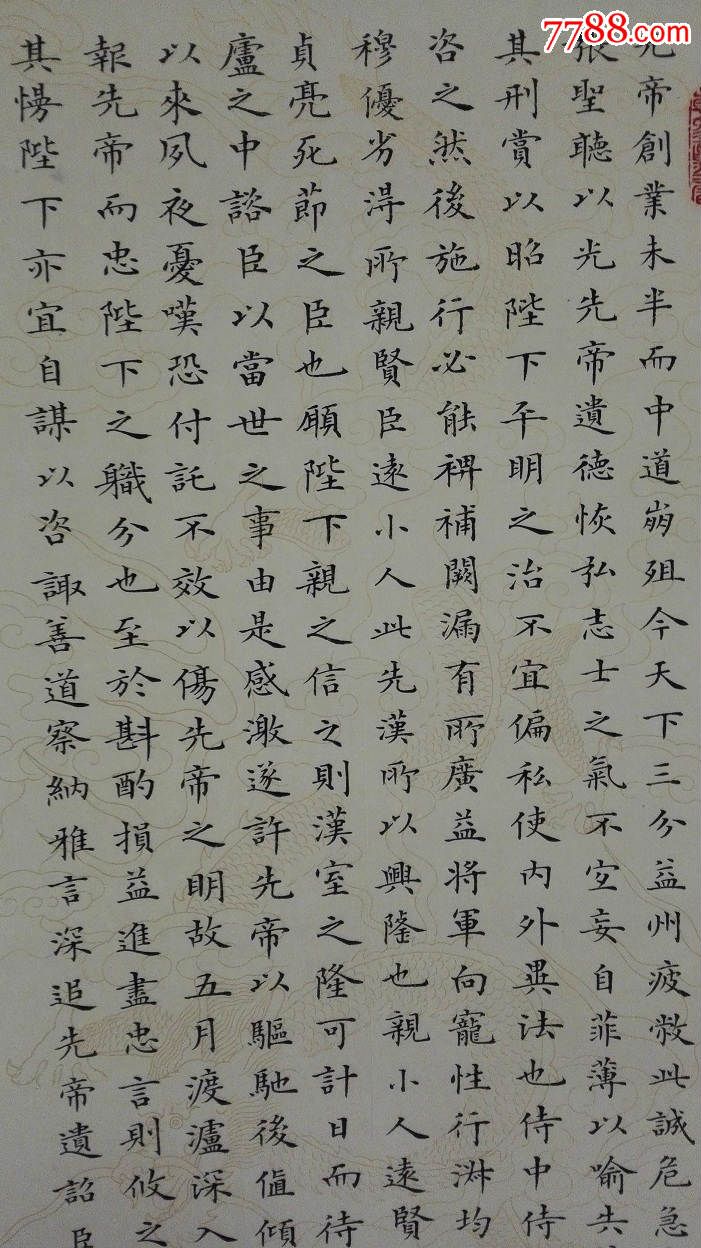 7788.com
先帝創業未半而中道崩殂今天下三分益州疲敝此誠危急
張聖聽以光先帝遺德恢弘志士之氣不宜妄自菲薄以喻失
其刑賞以昭陛下平明之治不宜偏私使內外異法也侍中侍
咨之然後施行必能裨補闕漏有所廣益將軍向寵性行淑均
穆優劣得所親賢臣遠小人此先漢所以興隆也親小人遠賢
貞亮死節之臣也願陛下親之信之則漢室之隆可計日而待
廬之中諮臣以當世之事由是感激遂許先帝以驅馳後值傾
以來夙夜憂嘆恐付託不效以傷先帝之明故五月渡瀘深入
報先帝而忠陛下之職分也至於斟酌損益進盡忠言則攸之
其慢陛下亦宜自謀以咨諏善道察納雅言深追先帝遺詔臣